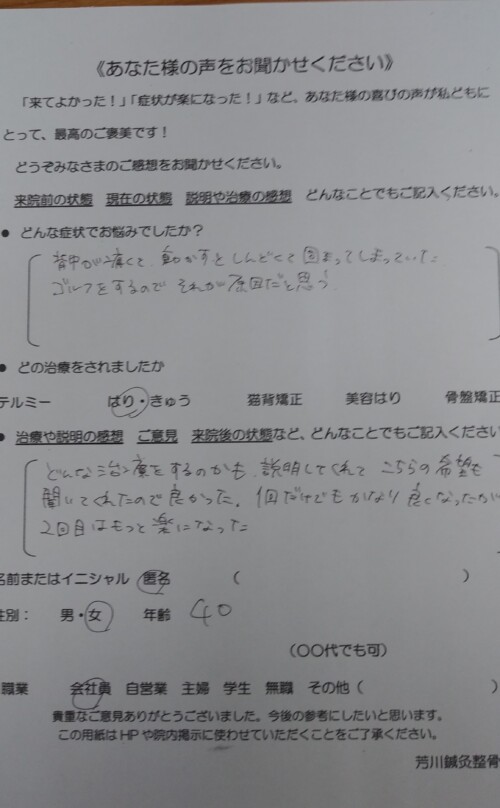 《あなた様の声をお聞かせください》
「来てよかった！」「症状が楽になった！」など、あなた様の喜びの声が私どもに
とって、最高のご褒美です！
どうぞみなさまのご感想をお聞かせください。
来院前の状態 現在の状態 説明や治療の感想 どんなことでもご記入ください。
● どんな症状でお悩みでしたか？
背中が痛くて、動かすとしんどくて固まってしまっていた
ゴルフをするので それが原因だと思う
● どの治療をされましたか
テルミー はり・きゅう 猫背矯正 美容はり 骨盤矯正
● 治療や説明の感想 ご意見 来院後の状態など、どんなことでもご記入ください
どんな治療をするのかも、説明してくれて こちらの希望も
聞いてくれたので良かった。1回だけでもかなり良くなったが
2回目はもっと楽になった
名前またはイニシャル 匿名 （ ）
性別： 男・女 年齢 40
（〇〇代でも可）
職業 会社員 自営業 主婦 学生 無職 その他（ ）
貴重なご意見ありがとうございました。今後の参考にしたいと思います。
この用紙はHPや院内掲示に使わせていただくことをご了承ください。
芳川鍼灸整骨